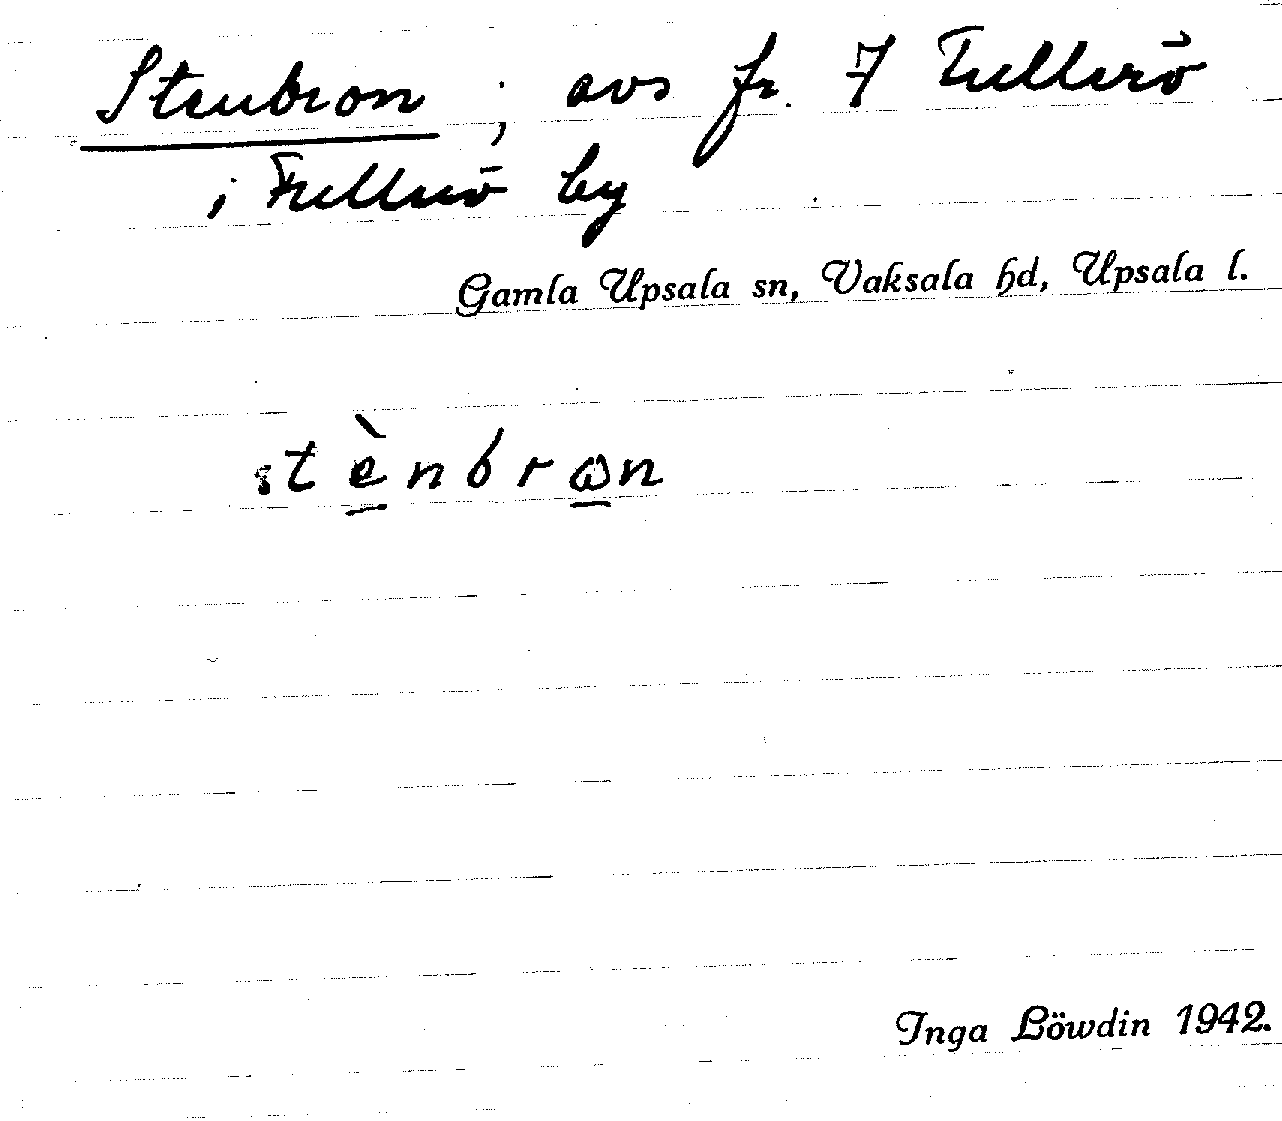 Stenbron, avs fr. 7 Fullerö
i Fullerö by
Gamla Upsala sn, Vaksala hd, Upsala l.
stè̱nbrω̱n
Inga Löwdin 1942.